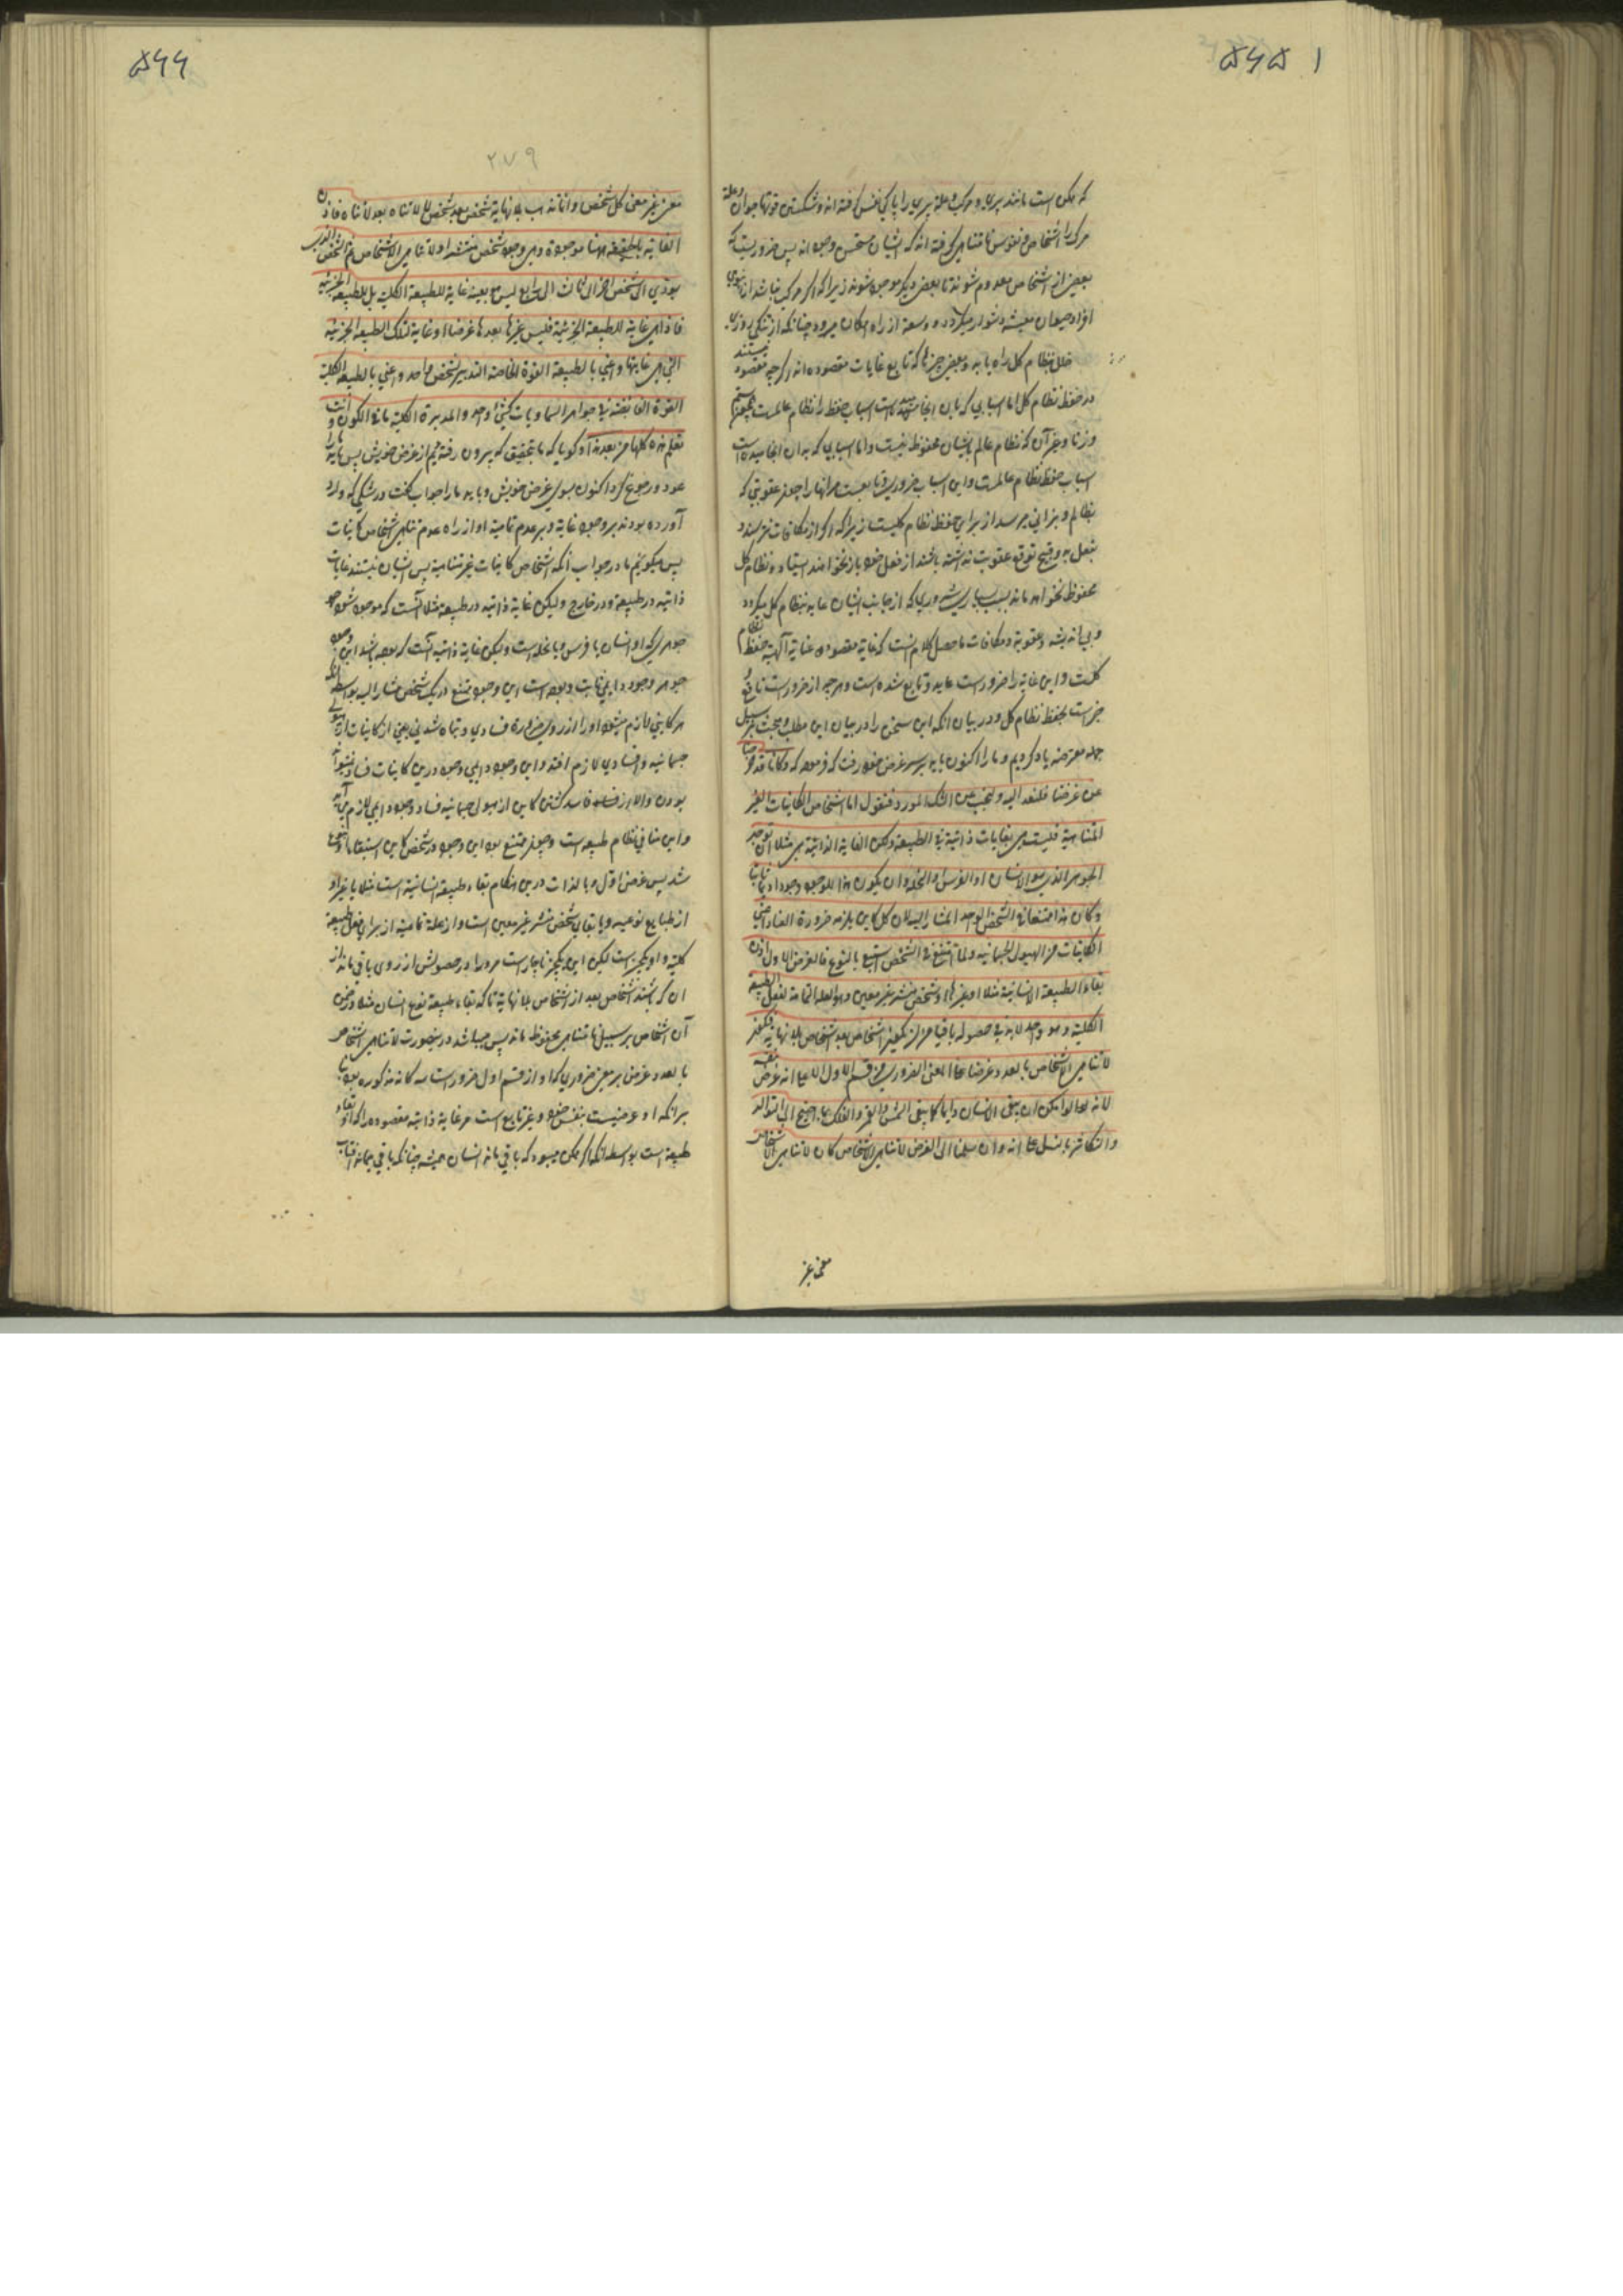 ۵۶۵ ۱
که ممکن است مانند پیری و مرک و علة پیری را پاکی نفس گرفته اند و شکستن قوتها حیوان و علة
مرک را اشخاص و نفوس نامتناهی گرفته اند که ایشان مستحسن وجود اند پس ضروریست که
بعضی از اشخاص معدوم شوند تا بعض دیگر موجود شوند زیرا که اگر مرک نباشد
افراد حیوان معیشه دشوار میکردد و وسعة از راه امکان میرود چنانکه از تنکی روزی
خلل بنظام کل راه یابد و بعض چیزها که تابع غایات مقصوده اند اگر چه مقصود نیستند
در حفظ نظام کل اما اسبابی که بدان انجامیده است اسباب حفظ نظام عالمست
و زنا و غیر آن که نظام عالم بایشان محفوظ نیست و اما اسبابی که بدان انجامیده است
اسباب حفظ نظام عالمست و این اسباب ضروری و تابعست مر انها را چون عقوبتی که
بظالم و بزانی میرسد از برای حفظ نظام کلیست زیرا که اگر از مکافات نترسند و
بفعل بد و قبیح توقع عقوبت نداشته باشند از فعل خود باز نخواهند ایستاد و نظام کل
محفوظ نخواهد ماند بسبب بسیاری شروری که از جانب ایشان عاید بنظام کل میکردد
و بی اندیشه و عقوبة و مکافات ماحصل کلام انست که غایة مقصوده عنایة الهیه حفظ نظام
کلست و این غایة را ضروراست عاید و تابع شده است و هر چه از ضروراست نافع و
خیر است بحفظ نظام کل و در بیان انکه این سخن را در بیان این مطلب و مبحث بر سبیل
جمله معترضه یاد کردیم و ما را اکنون باید بر سر غرض خود رفت که فرموده که و کانا قد خرجنا
عن غرضنا فلنعد الیه و لنجب عن الشک المورد فنقول اما اشخاص الکاینات الغیر
المتناهیة فلیست هی بغایات ذاتیة فی الطبیعة و لکن الغایة الذاتیة هی مثلا ان یوجد
الجوهر الذی هو الانسان او الفرس او النخلة و ان یکون هذا الوجود وجودا دایما ثابتا
و کان هذا ممتنعا فی الشخص الواحد المشار الیه لان کل کاین یلزمه ضرورة الفساد اعنی
الکاینات من الهیولی الجسمانیة و لما امتنع فی الشخص استبقی بالنوع فالغرض الاول اذن
بقاء الطبیعة الانسانیة مثلا او غیرها او شخص منتشر غیر معین و هو العلة التمامیة لفعل الطبیعة
الکلیة و هو واحد لابد فی حصوله باقیا من ان یکون اشخاص بعد اشخاص بلا نهایة فیکون
لاتناهی الاشخاص بالعدد غرضا علی المعنی الضروری من قسم الاول لا علی انه غرض بنفسه
لانه لو امکن ان یبقی الانسان دایما کما یبقی الشمس و القمر و الفلک لما احتیج الی التوالد
و التکاثر بالنسل علی انه و ان سلمنا ان الغرض لاتناهی الاشخاص کان لاتناهی الاشخاص
معنی غیر
۵۶۶
۲۷۹
معنی غیر معنی کل شخص و انما یذهب بلا نهایة شخص بعد شخص لا لاتناه بعد لاتناه فاذن
الغایة بالحقیقة ههنا موجودة و هی وجود شخص منتشر او لاتناهی الاشخاص ثم الشخص الذی
یؤدی الی شخص اخر الی ثالث الی رابع لیس هو بعینه غایة للطبیعة الکلیة بل للطبیعة الجزئیة
فاذا هی غایة للطبیعة الجزئیة فلیس غیرها بعدها غرضا و غایة لتلک الطبیعة الجزئیة
التی هی غایتها و اعنی بالطبیعة القوة الخاصة التدبیر لشخص واحد و اعنی بالطبیعة الکلیة
القوة الفایضة فی جواهر السماویات کشئ واحد و المدبرة الکلیة ما فی الکون و انت
تعلم هذه کلها من بعد هذا و کویا که ما بتحقیق که بیرون رفته‌ایم از غرض خویش پس باید ما را
عود و رجوع کرد اکنون بسوی غرض خویش و باید ما را جواب کفت در شکی که وارد
آورده بودند بر وجود غایة و بر عدم تمامیة او از راه عدم تناهی اشخاص کاینات
پس میکوییم ما در جواب انکه اشخاص کاینات غیر متناهیه پس ایشان نیستند غایات
ذاتیه در طبیعة و در خارج و لیکن غایة ذاتیه در طبیعة مثلا آنست که موجود شود
جوهری که او انسان یا فرس و یا نخله است و لیکن غایة ذاتیه آنست که بوده باشد این وجود
جوهر وجود دایمی ثابت و بوده است این وجود ممتنع در یک شخص مشار الیه بواسطه انکه
هر کاینی لازم میشود او را از روی ضرورة فسادی و تباه شدنی یعنی از کاینات از هیولی
جسمانیه و فسادی لازم افتد و این وجود دایمی وجود درین کاینات فساد
بودن و الا از فساد فاسد کشتن کاین از هیولی جسمانیه فساد وجود دایمی لازم می آید
و این منافی نظام طبیعه است و چون ممتنع بود این وجود در شخص کاین استبقا
شد پس غرض اول و بالذات درین هنکام بقاء طبیعة انسانیة است مثلا یا غیر او
از طبایع نوعیه و یا بقای شخص منتشر غیر معین است و او علة تمامیة از برای فعل طبیعة
کلیه و او یکچیز است لیکن این یکچیز ناچار است مر او را در حصولش از روی باقی ماندن از
ان که باشند اشخاص بعد از اشخاص بلا نهایة تا که بقاء طبیعة نوع انسان مثلا در ضمن
آن اشخاص بر سبیل نامتناهی محفوظ ماند پس میباشد درینصورت لاتناهی اشخاص
بالعدد غرض بر معنی ضروری که او از قسم اول ضروراست سه کانه مذکوره بود
برانکه او غرضیست بنفس خود و غیر تابع است مر غایة ذاتیه مقصوده را که او بقاء
طبیعة است بواسطه انکه اگر ممکن میبود که باقی ماند انسان همیشه چنانکه باقی میماند آفتاب